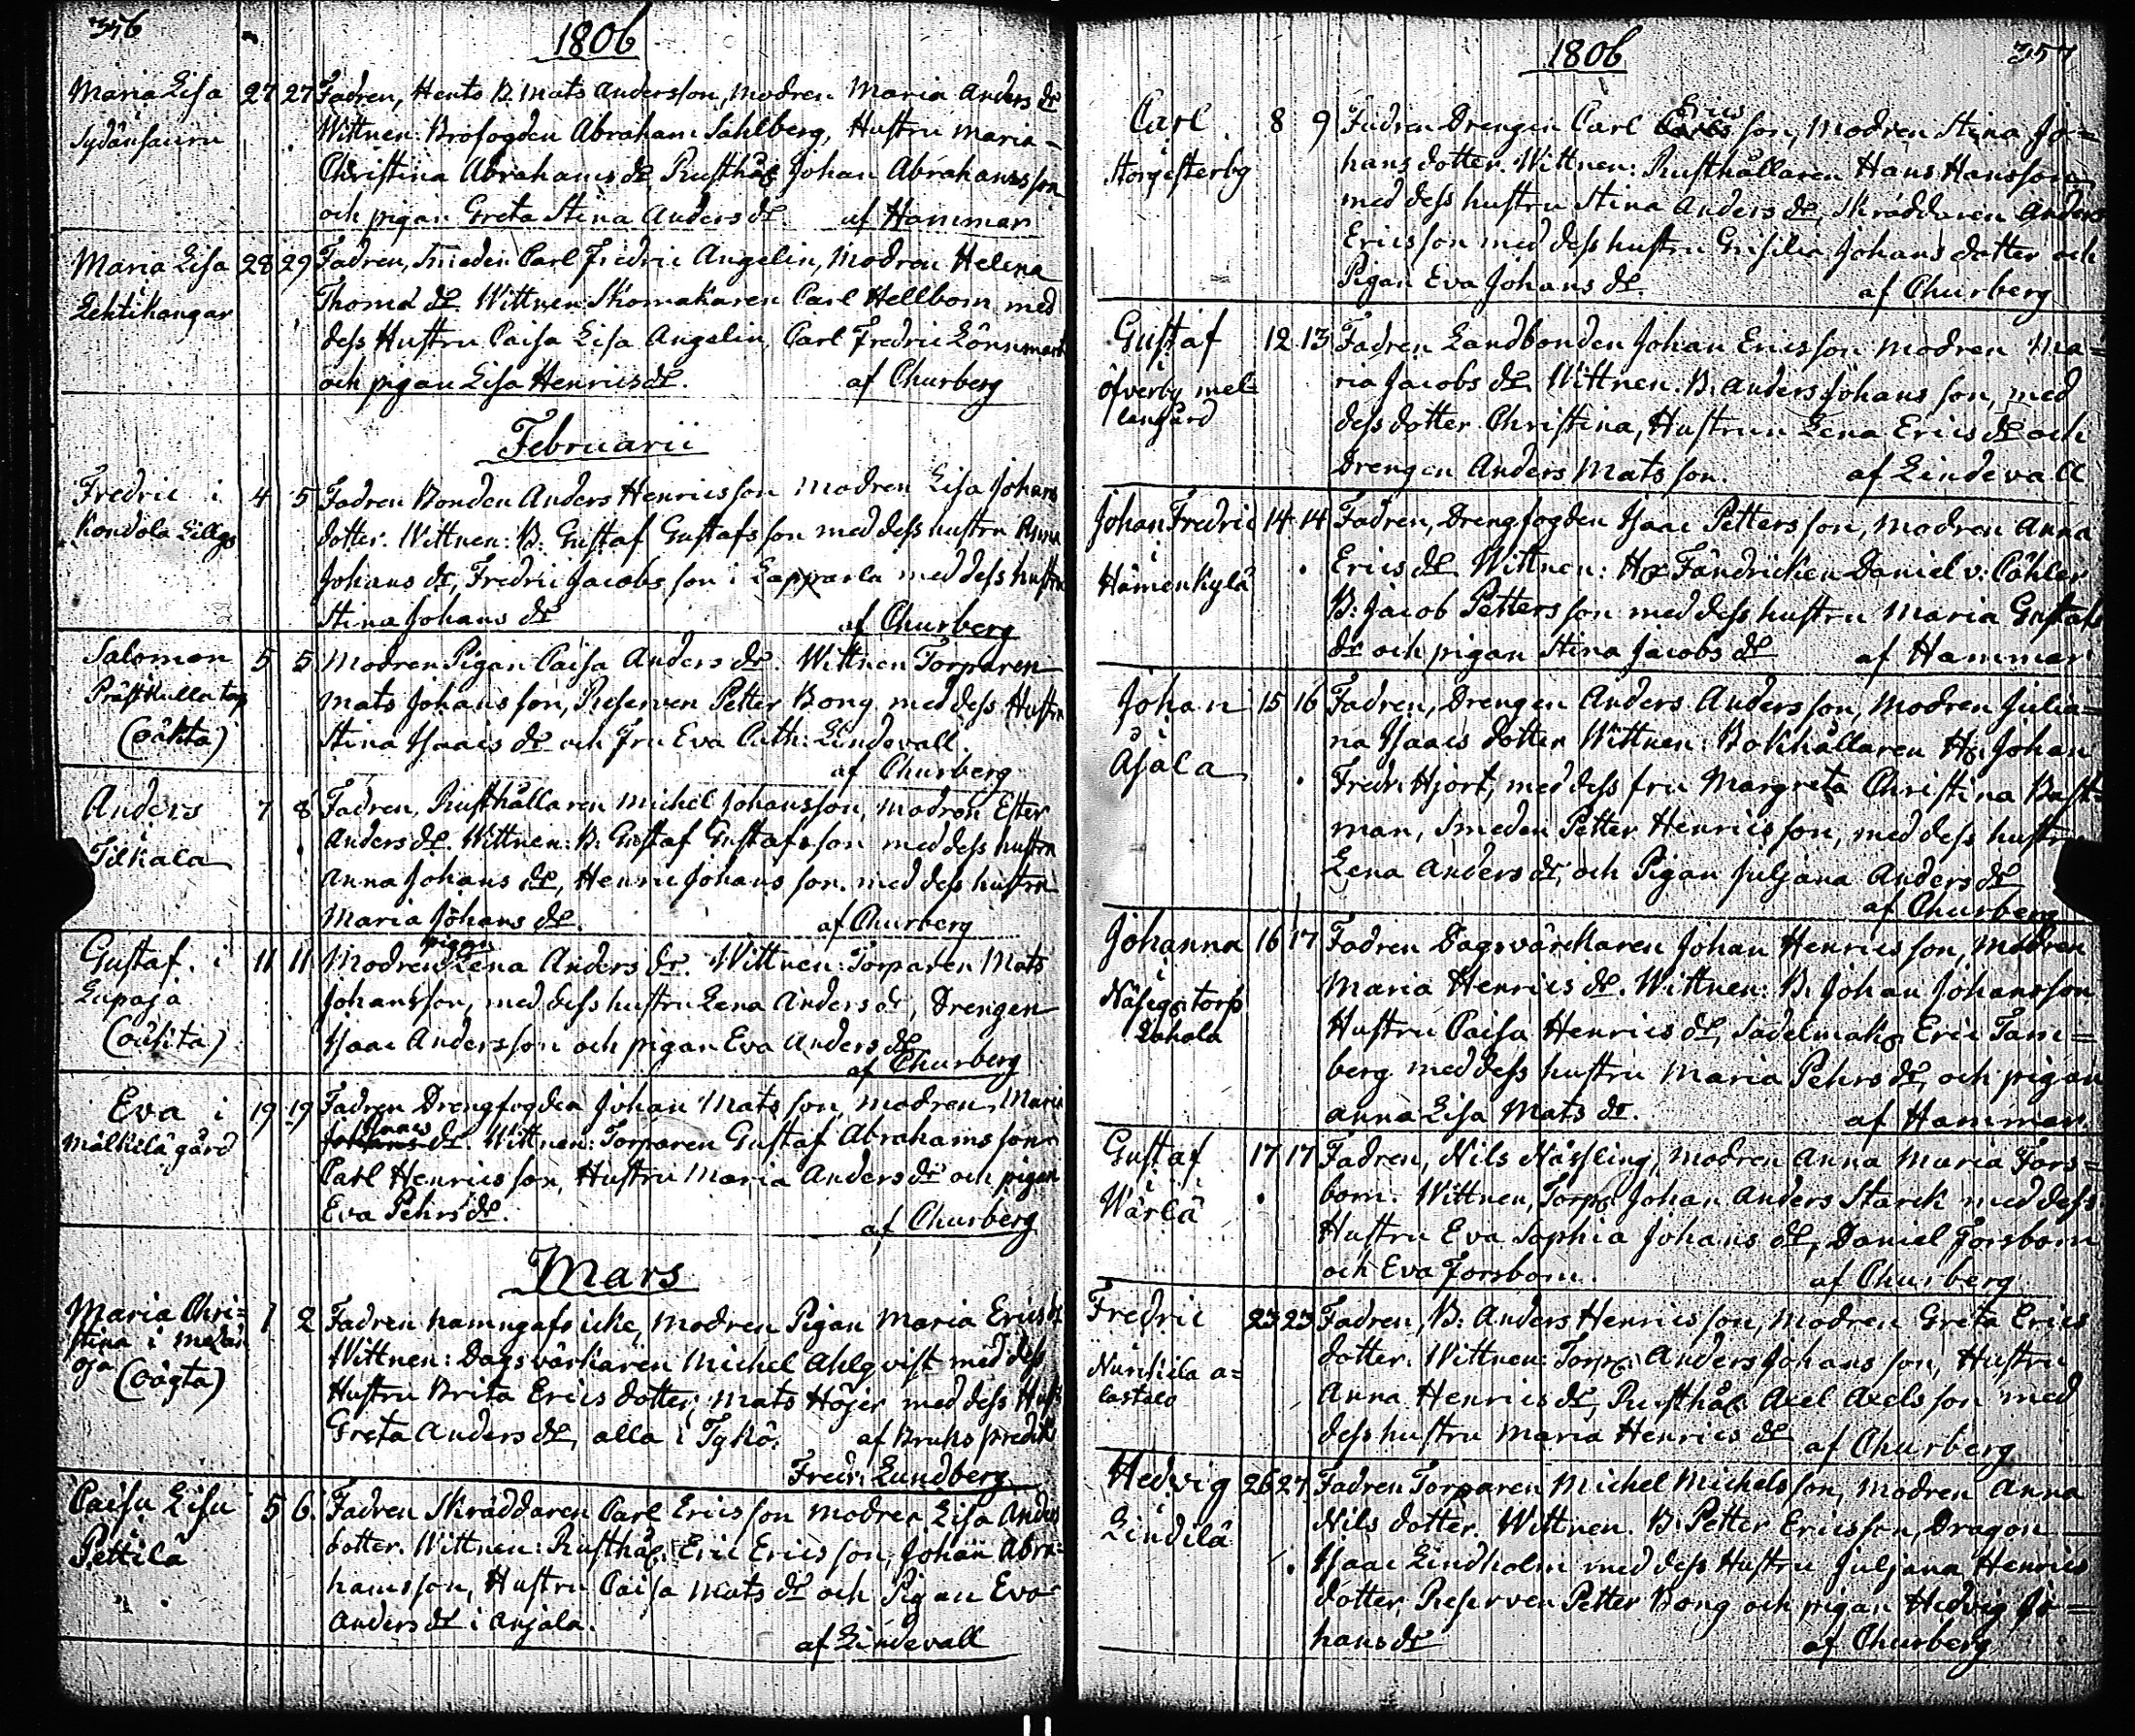 356
1806
Maria Lisa 27 27 Fadren, Hents B. Mats Andersson, Modren Maria Anders dr
Sydänsauru Wittnen: Brofogden Abraham Sahlberg, Hustru Maria
Christina Abrahams dr, Rusthål. Johan Abrahamsson
och pigan Greta Stina Anders dr. af Hammar
Maria Lisa 28 29 Fadren, Smeden Carl Fredric Angelin, Modren Helena
i Lehtikangar Thomæ dr. Wittnen Skomakaren Carl Hellbom med
dess Hustru Caisa Lisa Angelin, Carl Fredric Lönnmark
och pigan Lisa Henrics dr. af Churberg
Februarii
Fredric i 4 5 Fadren Bonden Anders Henricsson Modren Lisa Johans
Kondola Lillgd dotter. Wittnen: B: Gustaf Gustafsson med dess hustru Anna
Johans dr, Fredric Jacobsson i Lapparla med dess hustru
Stina Johans dr af Churberg
Salomon 5 5 Modren Pigan Caisa Anders dr. Wittnen Torparen
Prästkulla torp Mats Johansson, Reserven Petter Bong med dess Hustru
(oäkta) Stina Isaacs dr och Fru Eva Cath: Lindevall.
af Churberg
Anders 7 8 Fadren, Rusthållaren Michel Johansson, Modren Ester
i Anders dr. Wittnen: B: Gustaf Gustafsson med dess hustru
Tilkala Anna Johans dr, Henric Johansson. med dess hustru
Maria Johans dr. af Churberg
Gustaf. i 11 11 Modren pigan Lena Anders dr. Wittnen: Torparen Mats
Lupaja Johansson, med dess hustru Lena Anders dr, Drengen
(oäkta) Isaac Andersson och pigan Eva Anders dr
af Churberg
Eva i 19 19 Fadren Drengfogden Johan Matsson, Modren Maria
Mälkilä gård dr. Wittnen: Torparen Gustaf Abrahamsson
Carl Henricsson, Hustru Maria Anders dr och pigan
Eva Pehrs dr. af Churberg
Mars
Maria Chri= 1 2 Fadren namngafs icke, Modren Pigan Maria Erics dr
stina i Wittnen: Dagsvärkaren Michel Ahlqvist med dess
(oägta) Hustru Brita Erics dotter, Mats Höjer med dess Hust
Greta Anders dr, alla i Tykö. af Bruks predik
Fredr: Lundberg
Caisa Lisa 5 6. Fadren Skräddaren Carl Ericsson Modren Lisa Anders
i dotter. Wittnen: Rusthål: Eric Ericsson, Johan Abra=
Pettilä hamsson, Hustru Caisa Mats dr och Pigan Eva
Anders dr i Anjala.
af Lindevall
1806 357
Carl. 8 9 Fadren Drengen Carl Carls Erics son, Modren Stina Jo=
i hans dotter. Wittnen: Rusthållaren Hans Hansson
Storgisterby med dess hustru Stina Anders dr, Skräddaren Anders
Ericsson med dess hustru Grisilia Johans dotter och
Pigan Eva Johans dr. af Churberg
Gustaf 12 13 Fadren Landbonden Johan Ericsson Modren Ma=
i ria Jacobs dr. Wittnen. B: Anders Johansson, med
Öfverby mel= dess dotter Christina, Hustrun Lena Erics dr och
langård Drengen Anders Matsson. af Lindevall
Johan Fredric 14 14 Fadren, Drengfogden Isaac Pettersson, Modren Anna
i Erics dr. Wittnen: Hr Fändricken Daniel v: Cöhler
Hämenkylä B: Jacob Pettersson med dess hustru Maria Gustafs
dr och pigan Stina Jacobs dr af Hammar
Johan 15 16 Fadren, Drengen Anders Andersson, Modren Julia=
i na Isaacs dotter Wittnen: Bokhållaren Hr: Johan
Åsala Fredr: Hjort, med dess fru Margreta Christina Bast=
man, Smeden Petter Henricsson, med dess hustru
Lena Anders dr, och Pigan Juljana Anders dr
af Churberg
Johanna 16 17 Fadren Dagsvärckaren Johan Henricsson, Modren
i Maria Henrics dr. Wittnen: B: Johan Johansson
Näsegs torp Hustru Caisa Henrics dr, Sadelmak: Eric Tam=
Lahala berg med dess hustru Maria Pehrs dr, och pigan
Anna Lisa Mats dr. af Hammar.
Gustaf 17 17 Fadren, Nils Nässling, Modren Anna Maria Fors=
i bom. Wittnen, Torp: Johan Anders Starck med dess
Wärlä Hustru Eva Sophia Johans dr, Daniel Forsbom
och Eva Forsbom. af Churberg
Fredric 23 23 Fadren, B: Anders Henricsson, Modren Greta Erics
dotter. Wittnen: Torp: Anders Johansson, Hustru
Nurkkila a= Anna Henrics dr, Rusthål: Axel Axelsson med
lastalo dess hustru Maria Henrics dr af Churberg
Hedvig 26 27. Fadren Torparen Michel Michelsson, Modren Anna
i Nils dotter. Wittnen. B: Petter Ericsson, Dragon
Lindilä Isaac Lindholm med dess Hustru Juljana Henrics
dotter, Reserven Petter Bong och pigan Hedvig Jo=
hans dr af Churberg